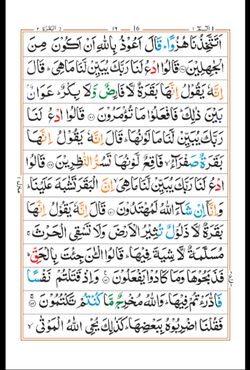 الٓمّٓ ١ ١٦ البقرة ٢
اَتَتَّخِذُنَا هُزُوًا ؕ قَالَ اَعُوْذُ بِاللّٰهِ اَنْ اَكُوْنَ مِنَ
الْجٰهِلِيْنَ ۝ قَالُوا ادْعُ لَنَا رَبَّكَ يُبَيِّنْ لَّنَا مَا هِيَ ؕ قَالَ
اِنَّهٗ يَقُوْلُ اِنَّهَا بَقَرَةٌ لَّا فَارِضٌ وَّلَا بِكْرٌ ؕ عَوَانٌۢ
بَيْنَ ذٰلِكَ ؕ فَافْعَلُوْا مَا تُؤْمَرُوْنَ ۝ قَالُوا ادْعُ لَنَا
رَبَّكَ يُبَيِّنْ لَّنَا مَا لَوْنُهَا ؕ قَالَ اِنَّهٗ يَقُوْلُ اِنَّهَا
بَقَرَةٌ صَفْرَآءُ ۙ فَاقِعٌ لَّوْنُهَا تَسُرُّ النّٰظِرِيْنَ ۝ قَالُوا
ادْعُ لَنَا رَبَّكَ يُبَيِّنْ لَّنَا مَا هِيَ ۙ اِنَّ الْبَقَرَ تَشٰبَهَ عَلَيْنَا ؕ
وَاِنَّآ اِنْ شَآءَ اللّٰهُ لَمُهْتَدُوْنَ ۝ قَالَ اِنَّهٗ يَقُوْلُ اِنَّهَا
بَقَرَةٌ لَّا ذَلُوْلٌ تُثِيْرُ الْاَرْضَ وَلَا تَسْقِي الْحَرْثَ ۚ
مُسَلَّمَةٌ لَّا شِيَةَ فِيْهَا ؕ قَالُوا الْـٰٔنَ جِئْتَ بِالْحَقِّ ؕ
فَذَبَحُوْهَا وَمَا كَادُوْا يَفْعَلُوْنَ ۝ وَاِذْ قَتَلْتُمْ نَفْسًا
فَادّٰرَءْتُمْ فِيْهَا ؕ وَاللّٰهُ مُخْرِجٌ مَّا كُنْتُمْ تَكْتُمُوْنَ ۝
فَقُلْنَا اضْرِبُوْهُ بِبَعْضِهَا ؕ كَذٰلِكَ يُحْيِ اللّٰهُ الْمَوْتٰى ۙ